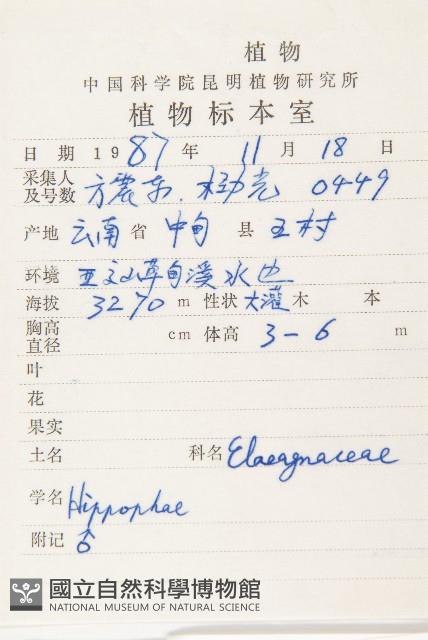 植物
中国科学院昆明植物研究所
植物标本室
日期 1987 年 11 月 18 日
采集人及号数 方震东. 0449
产地 云南省 中甸 县 王村
环境 草甸溪水边
海拔 3270 m 性状 大灌木 本
胸高直径 cm 体高 3-6 m
叶
花
果实
土名 科名 Elaeagnaceae
学名 Hippophae
附记 ♂
國立自然科學博物館
NATIONAL MUSEUM OF NATURAL SCIENCE